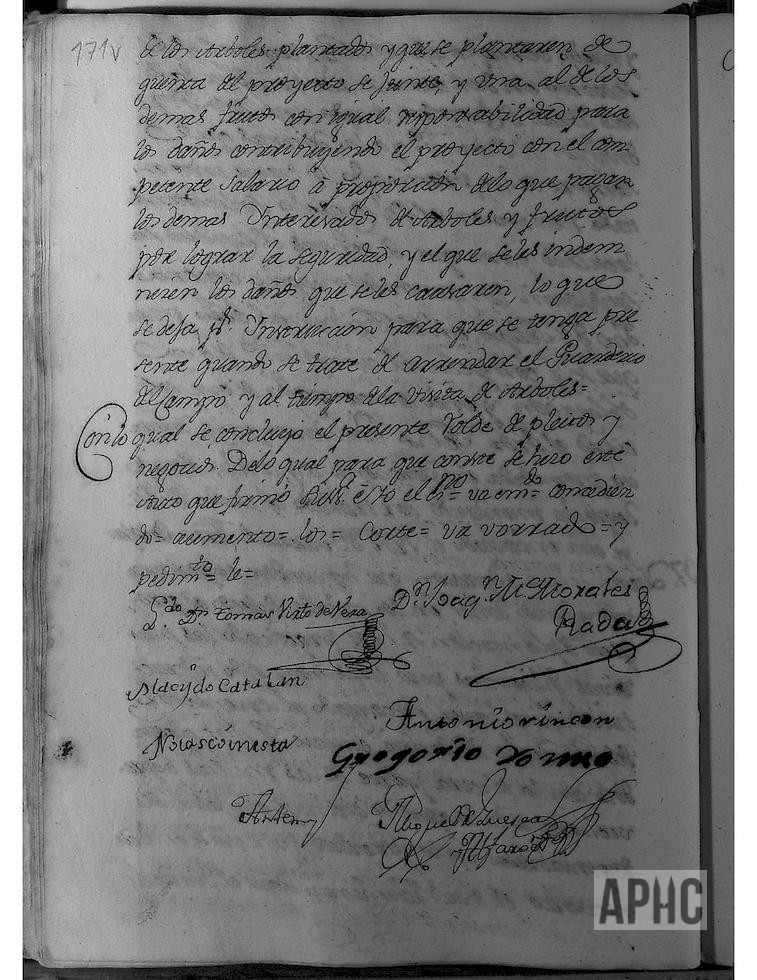 171v
de los Arboles plantados y que se plantaren de
quenta del proyecto se junte, y una al de los
demas frutos con igual responsabilidad para
los daños contribuyendo el proyecto con el com
petente salario à proporcion de lo que pagan
los demas Interesados de Arboles y frutos
por lograr la seguridad, y el que se les indem
nizen los daños que se les causaren, lo que
se deja pr. Instruccion para que se tenga pre
sente quando se trate de arrendar el Guarderio
del Campo y al tiempo de la visita de Arboles=
Con lo qual se concluyó el presente Volde de pleitos y
negocios. De lo qual para que conste se hizo este
Auto que firmó é Yo el va emdo= concedien
do= aumento= los= Corte= va vorrado= y
pedimto= le=
Ldo. Dn Tomàs Virto de Vera
Dn. Joaqn. M. Morales
Rada
Placydo Catalan
Antonio rincon
Blas coinesta
Gregorio
Antemy
Miguel de Luesca
Alfaro
APHC